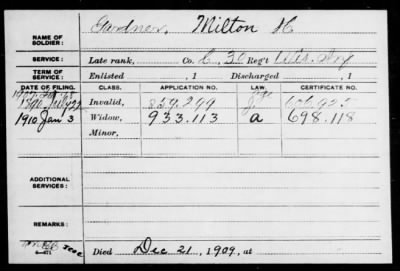 Gardner, Milton H
NAME OF
SOLDIER:
SERVICE: Late rank, Co. C, 30 Reg't Wis. Inf
TERM OF
SERVICE: Enlisted , 1 Discharged , 1
DATE OF FILING. CLASS. APPLICATION NO. LAW. CERTIFICATE NO.
Invalid, 859.299
1910 Jan 3 Widow, 933.113 a 698.118
Minor,
ADDITIONAL
SERVICES:
REMARKS:
Died Dec 21, 1909, at